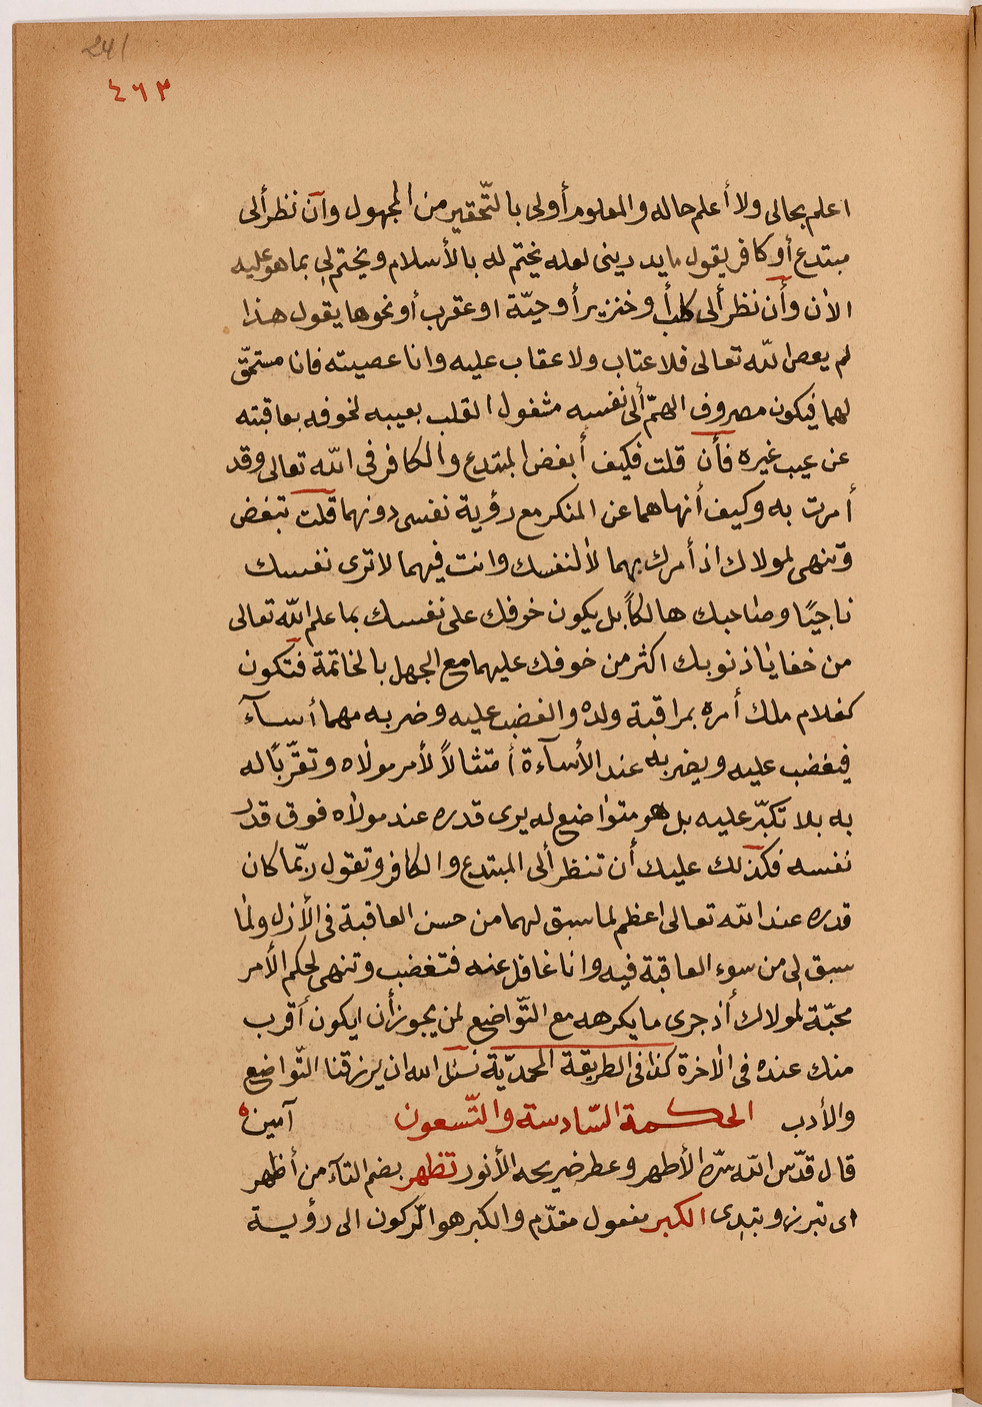 241
٤٦٣
اعلم بحالى ولا أعلم حاله والمعلوم أولى بالتّحقير من المجهول وأن نظر ألى
مبتدع أو كافر يقول مايدرينى لعله يختم له بالأسلام ويختم لى بما هو عليه
الاٰن وأن نظر ألى كلب أو خنزير أو حيّة او عقرب أو نحوها يقول هذا
لم يعص اللّه تعالى فلا عتاب ولا عقاب عليه وانا عصيته فانا مستحقّ
لهما فيكون مصروف الهمّ ألى نفسه مشغول القلب بعيبه لخوفه بعاقبته
عن عيب غيره فأن قلت فكيف أبغض المبتدع والكافر فى اللّه تعالى وقد
أمرت به وكيف أنهاهما عن المنكر مع رؤية نفسى دونهما قلت تبغض
وتنهى لمولاك اذ أمرك بهما لا لنفسك وانت فيهما لا ترى نفسك
ناجيًا وصاحبك هالكاً بل يكون خوفك على نفسك بما علم اللّه تعالى
من خفايا ذنوبك اكثر من خوفك عليهما مع الجهل بالخاتمة فتكون
كغلام ملك أمره بمراقبة ولده والغضب عليه وضربه مهما أسآء
فيغضب عليه ويضربه عند الأسآءة أمتثالاً لأمر مولاه وتقرّباً له
به بلا تكبّر عليه بل هو متواضع له يرى قدره عند مولاه فوق قدر
نفسه فكذلك عليك أن تنظر ألى المبتدع والكافر وتقول ربّما كان
قدره عند اللّه تعالى اعظم لما سبق لهما من حسن العاقبة فى الأزل ولما
سبق لى من سوء العاقبة فيه وانا غافل عنه فتغضب وتنهى لحكم الأمر
محبّة لمولاك أذ جرى ما يكرهه مع التّواضع لمن يجوز أن ايكون أقرب
منك عنده فى الاٰخرة كذا فى الطريقة المحمديّة نسئل الله ان يرزقنا التّواضع
والأدب الحكمة السّادسة والتّسعون آمين ه
قال قدّس اللّه سرّه الأطهر وعطر ضريحه الأنور تظهر بضم التآء من أظهر
اى تبرز وتبدى الكبر مفعول مقدّم والكبر هو الرّكون الى رؤية